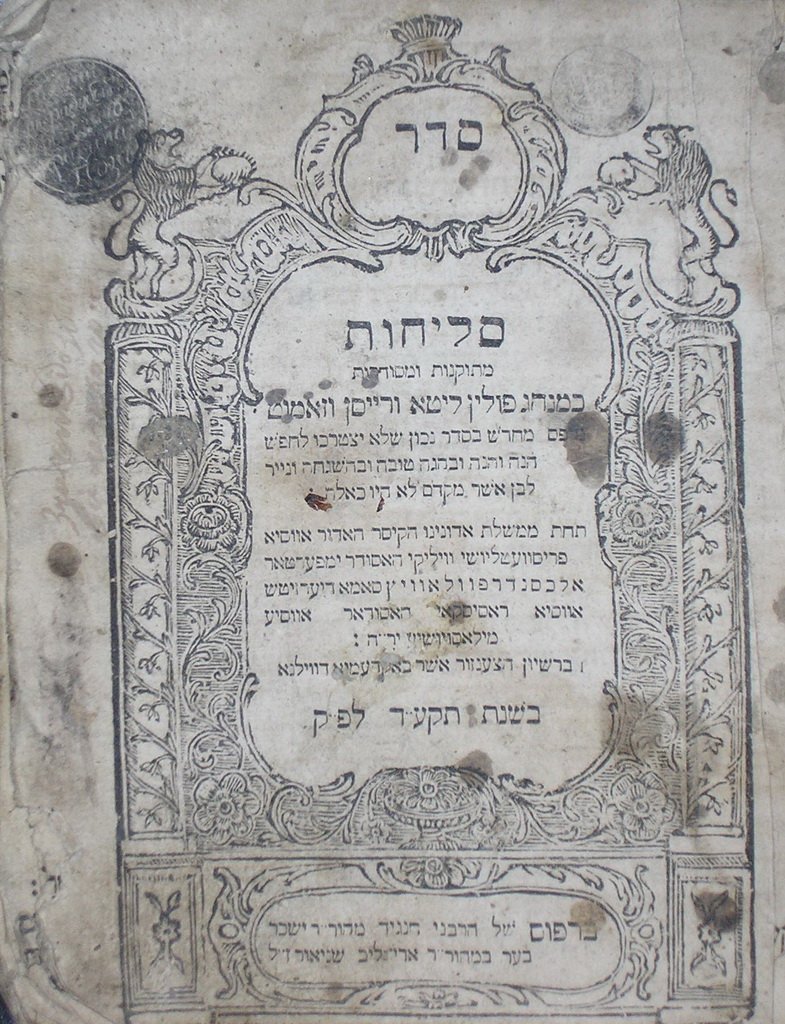 סדר
סליחות
מתוקנות ומסודרות
כמנהג פולין ליטא ורייסן וזאמוט
נדפס מחדש בסדר נכון שלא יצטרכו לחפש
הנה והנה ובהגה טובה ובהשגחה ונייר
לבן אשר מקדם לא היו כאלה
תחת ממשלת אדונינו הקיסר האדור אווסיא
פריסוועטליושי וויליקי האסודר ימפעראטאר
אלכסנדר פוולאוויץ סאמא דיערזיטש
אווסיא ראסיסקאי האסודאר אווסיע
יר״ה :
ברשיון הצענזור אשר באקדעמיא דווילנא
בשנת תקע״ד לפ״ק
ברפוס של הרבני הנגיד מהור״ר ישכר
בער במהור״ר ארי ליב שניאור ז״ל